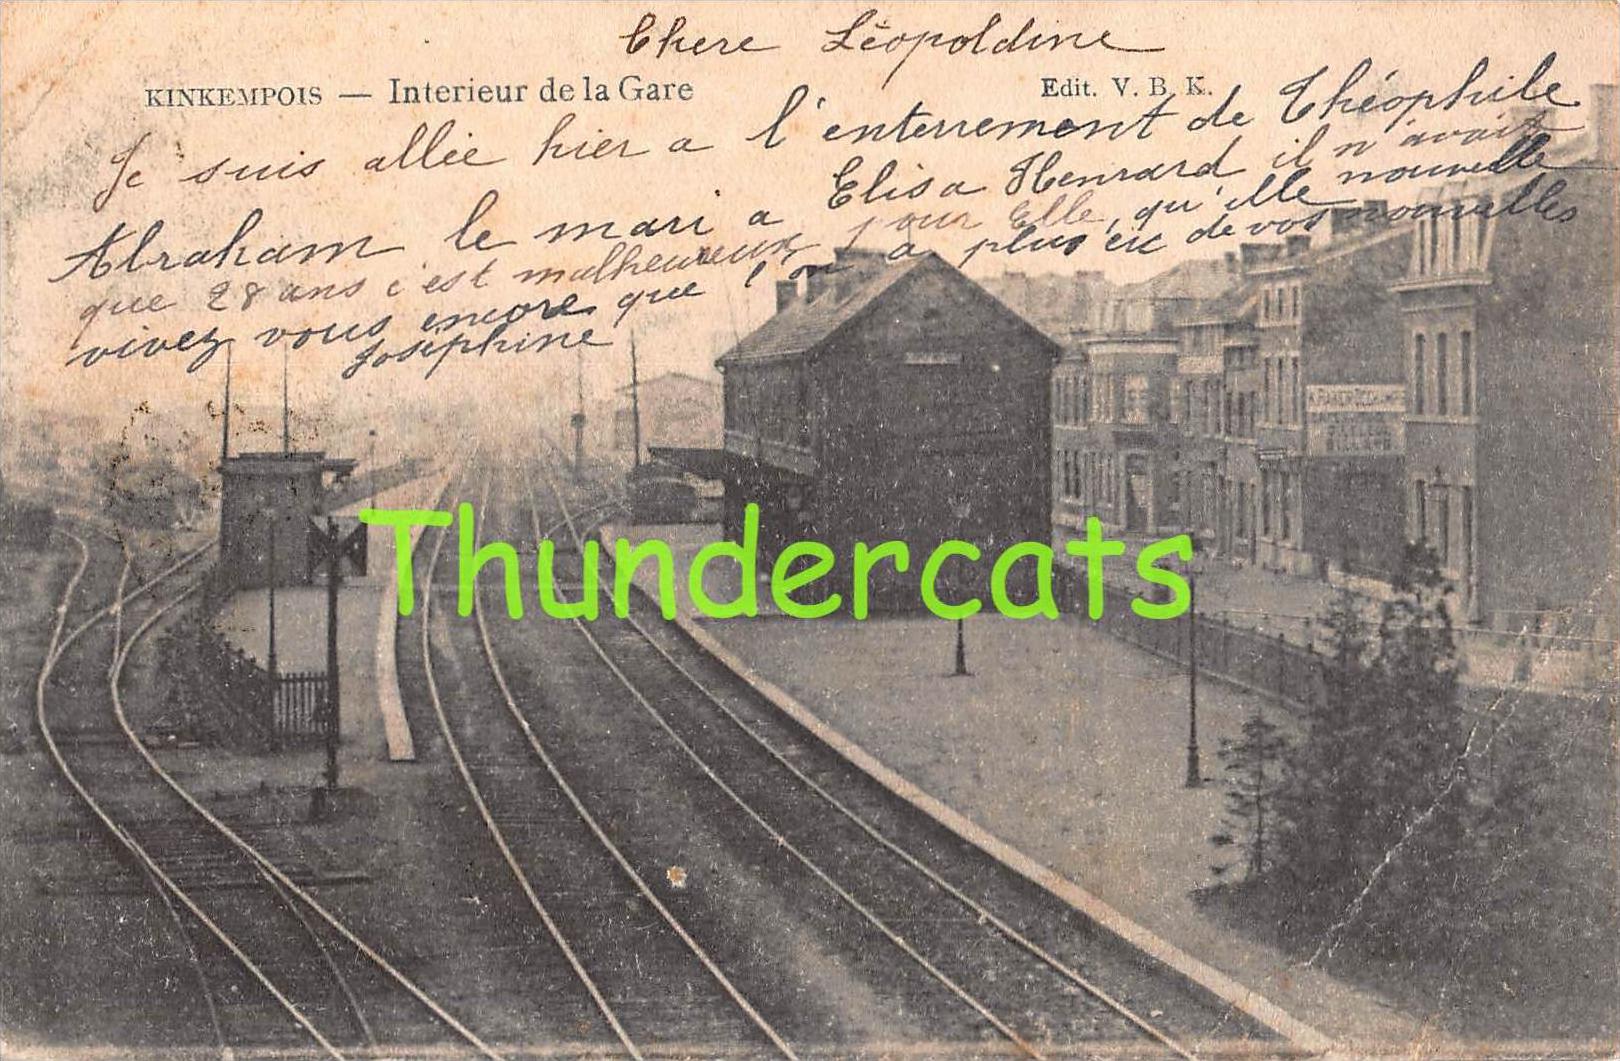 Chere Léopoldine
KINKEMPOIS — Interieur de la Gare
Edit. V. B. K.
Je suis allée hier a l'enterrement de Théophile
Abraham le mari a Elisa Henrard il n'avait
que 28 ans c'est malheureux pour Elle, qu'elle nouvelle
vivez vous encore que l'on a plus eu de vos nouvelles
Joséphine
BILLARD
Thundercats